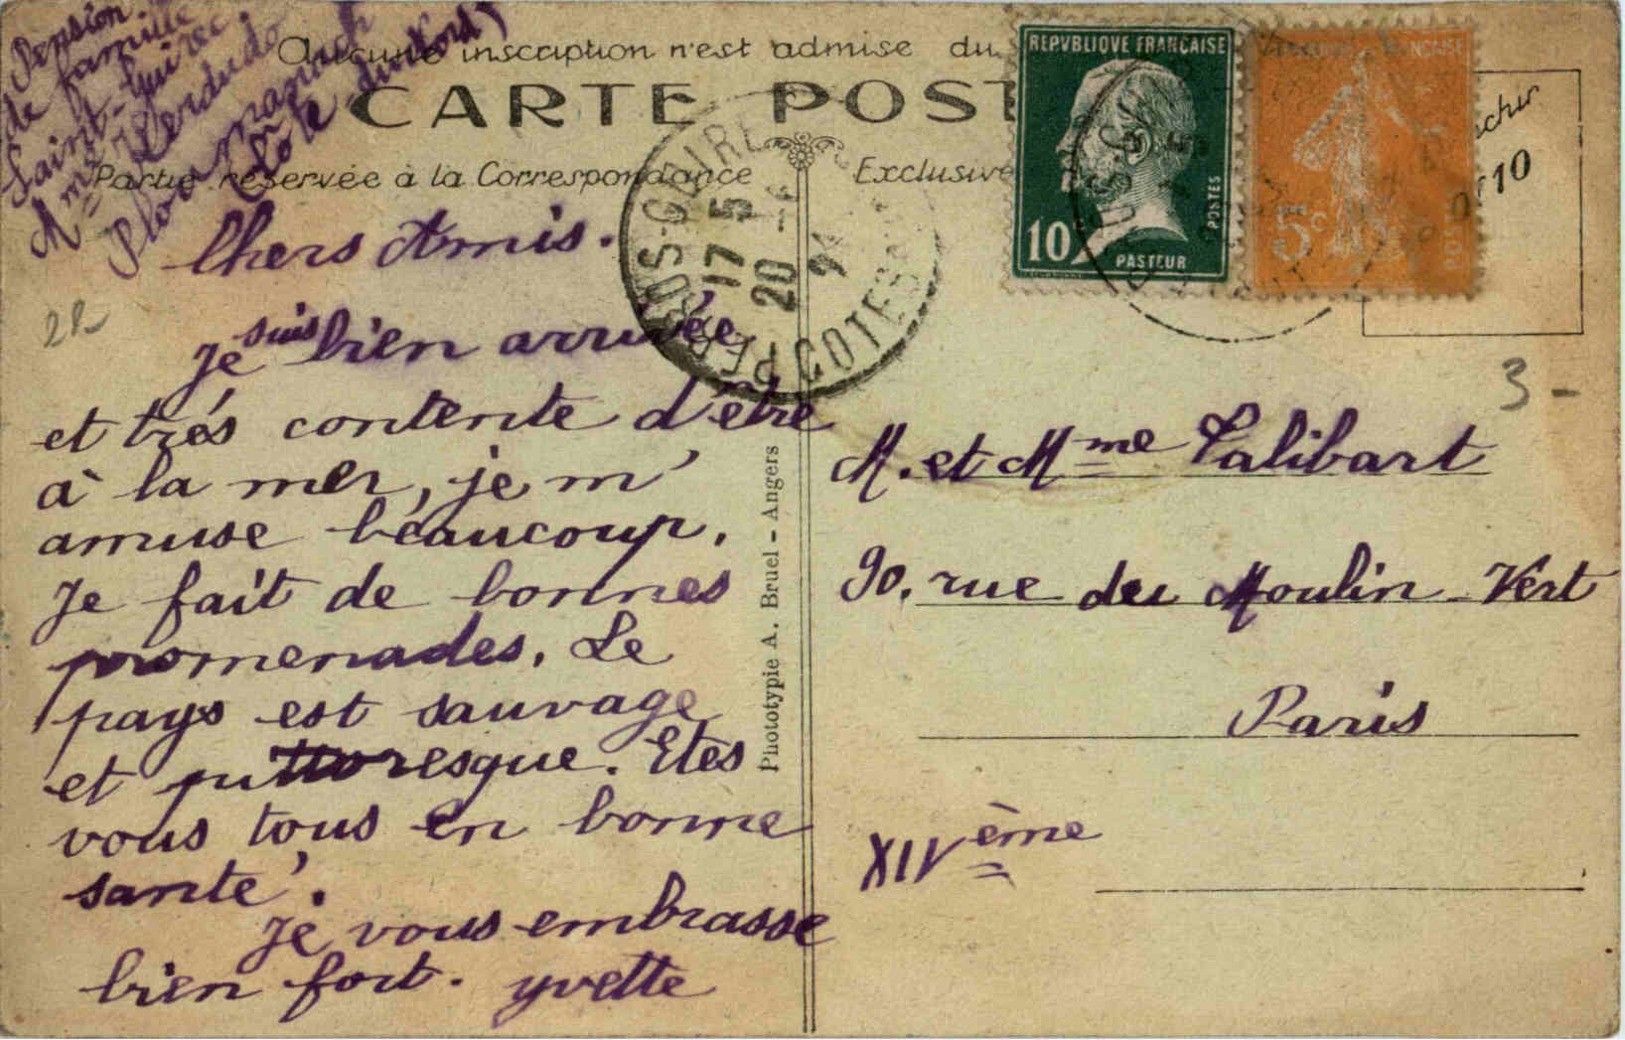 Pension
de famille
Saint-Guirec
Mme Verdudo
Ploumanach
(Côte du Nord)
Aucune inscription n'est admise du
CARTE POST
Partie réservée à la Correspondance
Exclusive
REPVBLIQVE FRANÇAISE
10c
POSTES
PASTEUR
5c
10
PERROS-GUIREC
17 5
20 -
COTES
22
Chers Amis.
Je suis bien arrivée
et trés contente d'être
à la mer, je m'
amuse beaucoup.
Je fait de bonnes
promenades. Le
pays est sauvage
et pittoresque. Etes
vous tous en bonne
santé.
Je vous embrasse
bien fort. yvette
Phototypie A. Bruel - Angers
3 -
M. et Mme Talibart
90. rue du Moulin-Vert
Paris
XIVème